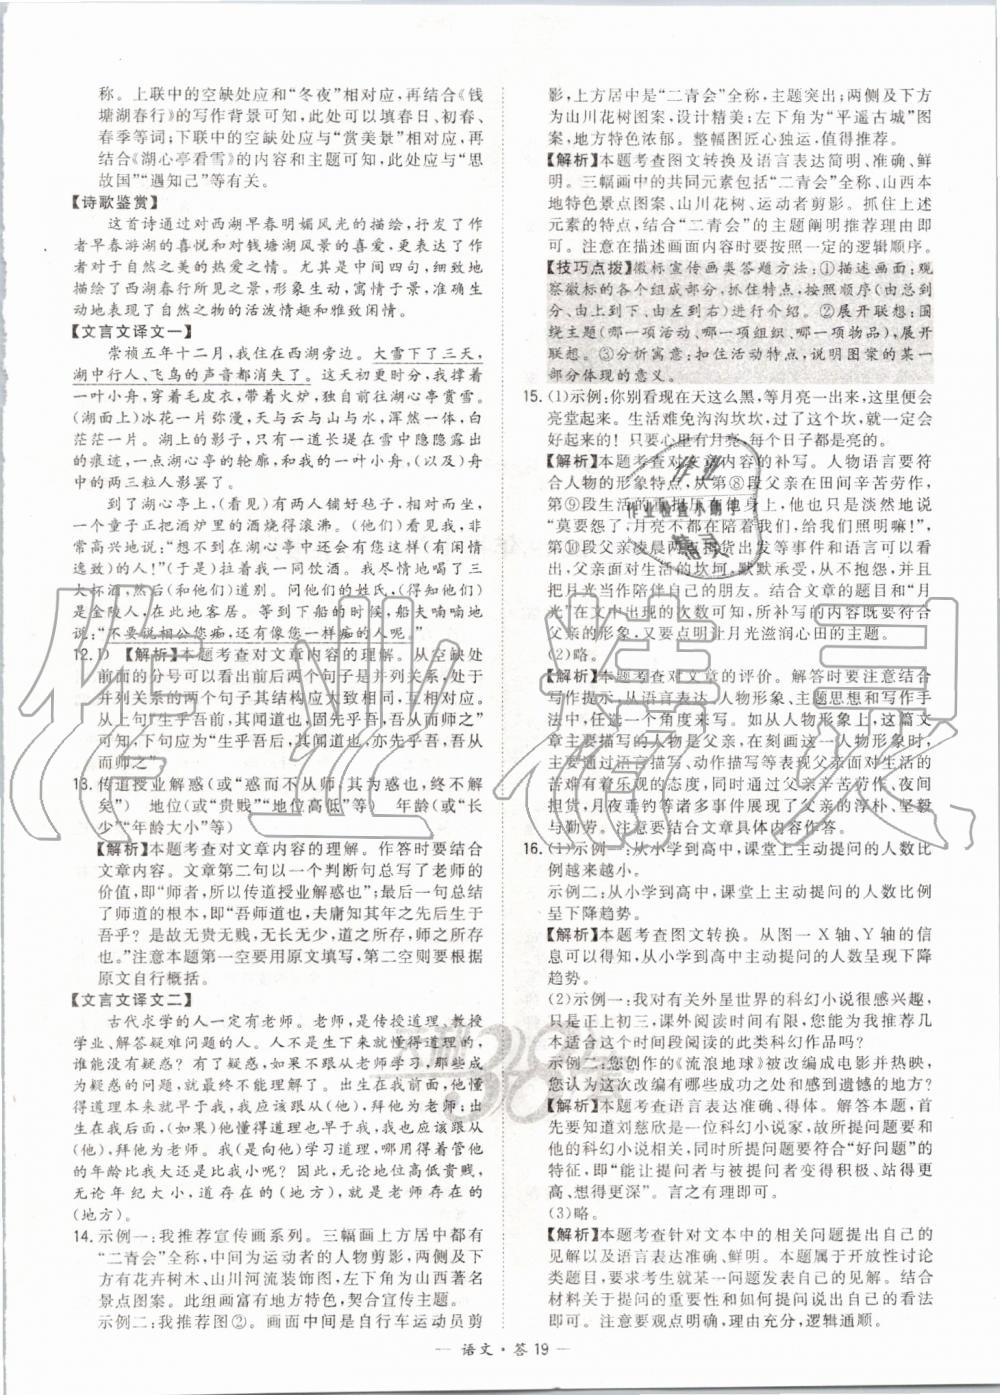 称。上联中的空缺处应和“冬夜”相对应,再结合《钱
塘湖春行》的写作背景可知,此处可以填春日、初春、
春季等词;下联中的空缺处应与“赏美景”相对应,再
结合《湖心亭看雪》的内容和主题可知,此处应与“思
故国”“遇知己”等有关。
【诗歌鉴赏】
这首诗通过对西湖早春明媚风光的描绘,抒发了作
者早春游湖的喜悦和对钱塘湖风景的喜爱,更表达了作
者对于自然之美的热爱之情。尤其是中间四句,细致地
描绘了西湖春行所见之景,形象生动,准确、细致而大
动地表现了自然之物的活泼情趣和雅致闲情。
【文言文译文一】
崇祯五年十二月,我住在西湖旁边。大雪下了三天,
湖中行人、飞鸟的声音都消失了。这天初更时分,我撑着
一叶小舟,穿着毛皮衣,带着火炉,独自前往湖心亭赏雪。
(湖面上)冰花一片弥漫,天与云与山与水,浑然一体,白
茫茫一片。湖上的影子,只有一道长堤在雪中隐隐露出
的痕迹,一点湖心亭的轮廓,和我的一叶小舟,(以及)舟
中的两三粒人影罢了。
到了湖心亭上,(看见)有两人铺好毡子,相对而坐,
一个童子正把酒炉里的酒烧得滚沸。(他们)看见我,非
常高兴地说:“想不到在湖心亭中还会有这样(有闲情
逸致)的人!”(于是)拉着我一同饮酒。我尽力喝了三
大杯酒,然后(和他们)道别。问他们的姓氏,(得知他们)
是金陵人,在此地客居。等到下船的时候,船夫喃喃地
说:“不要说相公您痴,还有像您一样痴的人呢。”
12. D 【解析】本题考查对文章内容的理解。从空缺处
前面的分号可以看出前后两个句子是并列关系,处于
并列关系的两个句子其结构应大致相同、相互对应。
从上句“生乎吾前,其闻道也,固先乎吾,吾从而师之”
可知,下句应为“生乎吾后,其闻道也,亦先乎吾,吾从
而师之”。
13. 传道授业解惑(或“惑而不从师,其为惑也,终不解
矣”) 地位(或“贵贱”“地位高低”等) 年龄(或“长
少”“年龄大小”等)
【解析】本题考查对文章内容的理解。作答时要结合
文章内容。文章第二句以一个判断句总写了老师的
价值,即“师者,所以传道授业解惑也”;最后一句总结
了师道的根本,即“吾师道也,夫庸知其年之先后生于
吾乎?是故无贵无贱,无长无少,道之所存,师之所存
也。”注意本题第一空要用原文填写,第二空则要根据
原文自行概括。
【文言文译文二】
古代求学的人一定有老师。老师,是传授道理、教授
学业、解答疑难问题的人。人不是生下来就懂得道理的,
谁能没有疑惑?有了疑惑,如果不跟从老师学习,那些成
为疑惑的问题,就最终不能解开。出生在我前面,他懂得
道理本来就早于我,我应该跟从(他),拜他为老师;出生
在我后面,(如果)他懂得道理也早于我,我也应该跟从
(他),拜他为老师。我(是向他)学习道理,哪用得着管他
的年龄比我大还是比我小呢?因此,无论地位高低贵贱,
无论年纪大小,道存在的(地方),就是老师存在的
(地方)。
14. 示例一:我推荐宣传画系列。三幅画上方居中都有
“二青会”全称,中间为运动者的人物剪影,两侧及下
方有花卉树木、山川河流装饰图,左下角为山西著名
景点图案。此组画富有地方特色,契合宣传主题。
示例二:我推荐图②。画面中间是自行车运动员剪
影,上方居中是“二青会”全称,主题突出;两侧及下方
为山川花树图案,设计精美;左下角为“平遥古城”图
案,地方特色浓郁。整幅图匠心独运,值得推荐。
【解析】本题考查图文转换及语言表达简明、准确、鲜
明。三幅画中的共同元素包括“二青会”全称、山西本
地特色景点图案、山川花树、运动者剪影。抓住上述
元素的特点,结合“二青会”的主题阐明推荐理由即
可。注意在描述画面内容时要按照一定的逻辑顺序。
【技巧点拨】徽标宣传画类答题方法:①描述画面;观
察徽标的各个组成部分,抓住特点,按顺序(由总到
分、由上到下、由左到右)进行介绍。②展开联想:围
绕主题(哪一项活动、哪一项组织、哪一项物品),展开
联想。③分析寓意:扣住活动特点,说明图案的某一
部分体现的意义。
15. (1)示例:你别看现在天这么黑,等月亮一出来,这里便会
亮堂起来。生活难免沟沟坎坎,过了这个坎,就一定会
好起来的!只要心里有月亮,每个日子都是亮的。
【解析】本题考查对文章内容的补写。人物语言要符
合人物的形象特点,从第⑧段父亲在田间辛苦劳作,
第⑨段生活的重担压在他身上,他也只是淡然地说
“莫要怨了,月亮不都在陪着我们,给我们照明嘛!”,
第⑩段父亲凌晨两点拐货出发等内容,可以看
出,父亲面对生活的坎坷,默默承受,从不抱怨,并
把月光当作陪伴自己的朋友。结合文章的题目和“月
光”在文中出现的次数可知,所补写的内容既要符合
父亲的形象,又要点明让月光滋润心田的主题。
(2)略。
【解析】本题考查对文章的评价。解答时要注意结合
写作提示,从语言表达、人物形象、主题思想和写作手
法中,任选一个角度来写。如从人物形象上,这篇文
章主要描写的人物是父亲,在刻画这一人物形象时,
主要通过语言描写、动作描写等表现父亲面对生活的
苦难有着乐观的态度,同时通过父亲辛苦劳作、夜间
担货,月夜雕刻等诸多事件展现了父亲的淳朴、坚毅
与勤劳。注意要结合文章具体内容作答。
16. (1)示例一:从小学到高中,课堂上主动提问的人数比
例越来越小。
示例二:从小学到高中,课堂上主动提问的人数比例
呈下降趋势。
【解析】本题考查图文转换。从图一X轴、Y轴的信
息可以得知,从小学到高中主动提问的人数呈现下降
趋势。
(2)示例一:我对有关外星世界的科幻小说很感兴趣,
只是正上初三,课外阅读时间有限,您能为我推荐几
本适合这个时间段阅读的此类科幻作品吗?
示例二:您创作的《流浪地球》被改编成电影并热映,
您认为这次改编有哪些成功之处和感到遗憾的地方?
【解析】本题考查语言表达准确、得体。解答本题,首
先要知道刘慈欣是一位科幻小说家,故所提问题要和
他的科幻小说相关,同时所提问题要符合“好问题”的
特征,即“能让提问者与被提问者变得积极、站得更
高、想得更深”。言之有理即可。
(3)略。
【解析】本题考查针对文本中的相关问题提出自己的
见解以及语言表达准确、鲜明。本题属于开放性讨论
类题目,要求考生就某一问题发表自己的见解。结合
材料关于提问的重要性和如何提问说出自己的看法
即可。注意要有理有据、逻辑通顺。
— 语文·答 19 —
作业
作业检查小助手
精灵
作业精灵
天利38套